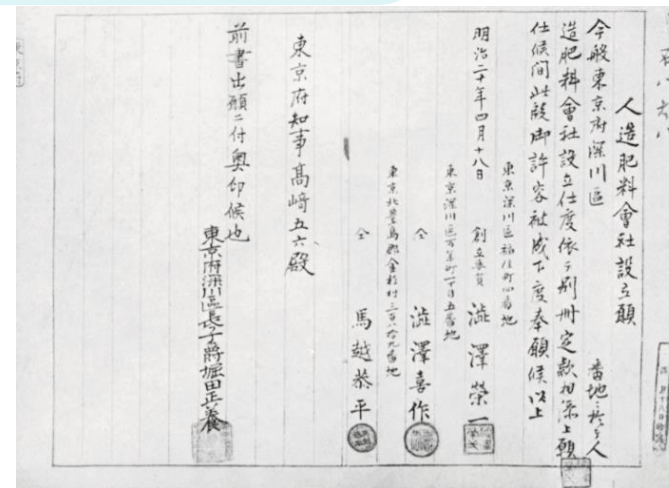 人造肥料會社設立願
今般東京府深川區 番地ニ於テ人
造肥料會社設立仕度依テ別冊定款相添上願
仕候間此段御許容被成下度奉願候以上
東京深川區福住町四番地
明治二十年四月十八日 創立委員 澁澤榮一
東京深川區万年町一丁目五番地
仝 澁澤喜作
東京北豊島郡金杉村三百八十九番地
仝 馬越恭平
東京府知事髙﨑五六殿
前書出願ニ付奥印候也
東京府深川區長子爵堀田正養
東京府